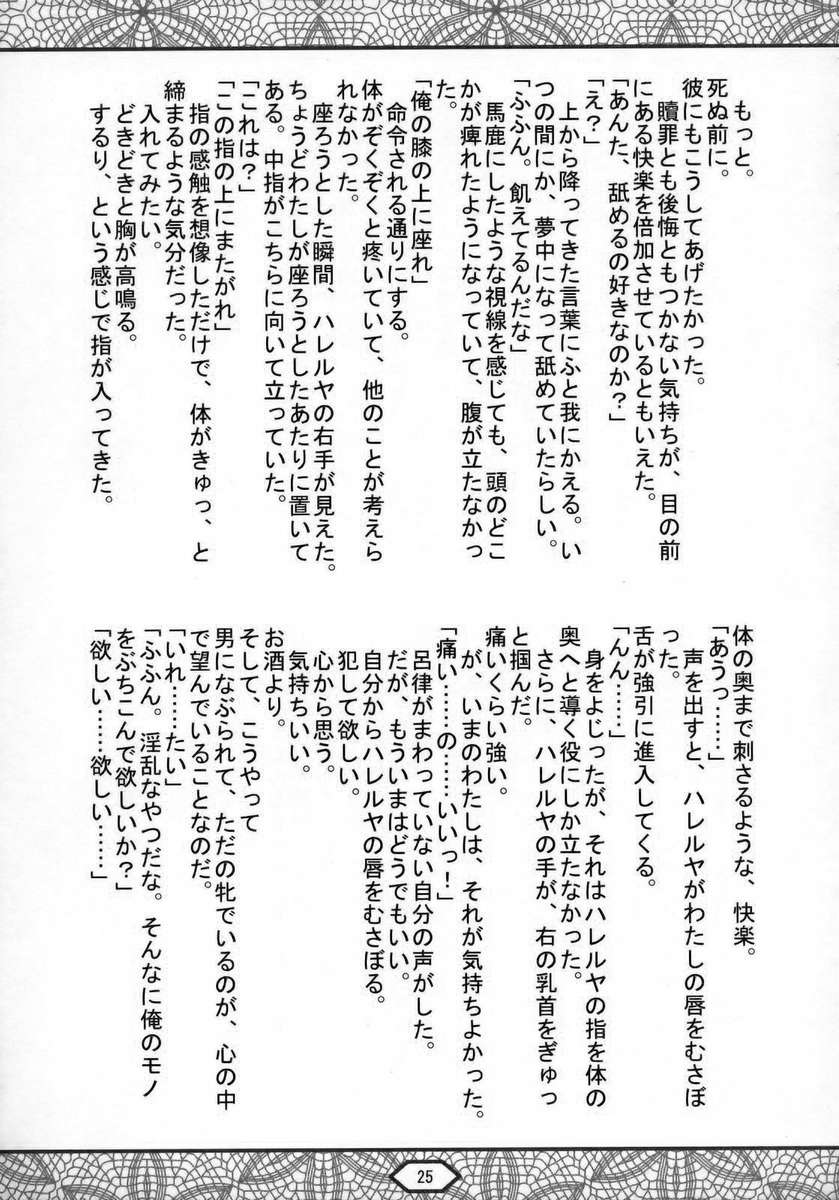 もっと。
死ぬ前に。
彼にもこうしてあげたかった。
贖罪とも後悔ともつかない気持ちが、目の前
にある快楽を倍加させているともいえた。
「あんた、舐めるの好きなのか?」
「え?」
上から降ってきた言葉にふと我にかえる。い
つの間にか、夢中になって舐めていたらしい。
「ふふん。飢えてるんだな」
馬鹿にしたような視線を感じても、頭のどこ
かが痺れたようになっていて、腹が立たなかっ
た。
「俺の膝の上に座れ」
命令される通りにする。
体がぞくぞくと疼いていて、他のことが考えら
れなかった。
座ろうとした瞬間、ハレルヤの右手が見えた。
ちょうどわたしが座ろうとしたあたりに置いて
ある。中指がこちらに向いて立っていた。
「これは?」
「この指の上にまたがれ」
指の感触を想像しただけで、体がきゅっ、と
締まるような気分だった。
入れてみたい。
どきどきと胸が高鳴る。
するり、という感じで指が入ってきた。
体の奥まで刺さるような、快楽。
「あうっ……」
声を出すと、ハレルヤがわたしの唇をむさぼ
った。
舌が強引に進入してくる。
「んん……」
身をよじったが、それはハレルヤの指を体の
奥へと導く役にしか立たなかった。
さらに、ハレルヤの手が、右の乳首をぎゅっ
と掴んだ。
痛いくらい強い。
が、いまのわたしは、それが気持ちよかった。
「痛い……の……いいっ!」
呂律がまわっていない自分の声がした。
だが、もういまはどうでもいい。
自分からハレルヤの唇をむさぼる。
犯して欲しい。
心から思う。
気持ちいい。
お酒より。
そして、こうやって
男になぶられて、ただの牝でいるのが、心の中
で望んでいることなのだ。
「いれ……たい」
「ふふん。淫乱なやつだな。そんなに俺のモノ
をぶちこんで欲しいか?」
「欲しい……欲しい……」
25